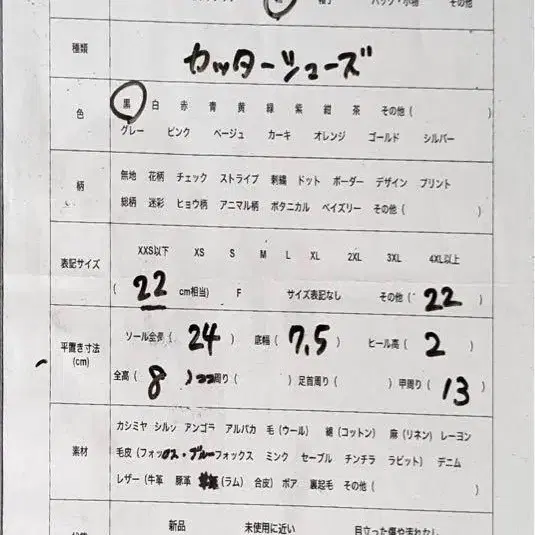 帽子 バッグ・小物 その他
種類 カッターシューズ
色 黒 白 赤 青 黄 緑 紫 紺 茶 その他 ( )
グレー ピンク ベージュ カーキ オレンジ ゴールド シルバー
柄 無地 花柄 チェック ストライプ 刺繍 ドット ボーダー デザイン プリント
総柄 迷彩 ヒョウ柄 アニマル柄 ボタニカル ペイズリー その他 ( )
表記サイズ XXS以下 XS S M L XL 2XL 3XL 4XL以上
( 22 cm相当) F サイズ表記なし その他 ( 22 )
平置き寸法 (cm) ソール全長 ( 24 ) 底幅 ( 7.5 ) ヒール高 ( 2 )
全高 ( 8 ) 周り ( ) 足首周り ( ) 甲周り ( 13 )
素材 カシミヤ シルク アンゴラ アルパカ 毛 (ウール) 綿 (コットン) 麻 (リネン) レーヨン
毛皮 (フォックス・ブルーフォックス ミンク セーブル チンチラ ラビット) デニム
レザー (牛革 豚革 (ラム) 合皮) ボア 裏起毛 その他 ( )
新品 未使用に近い 目立った傷や汚れなし